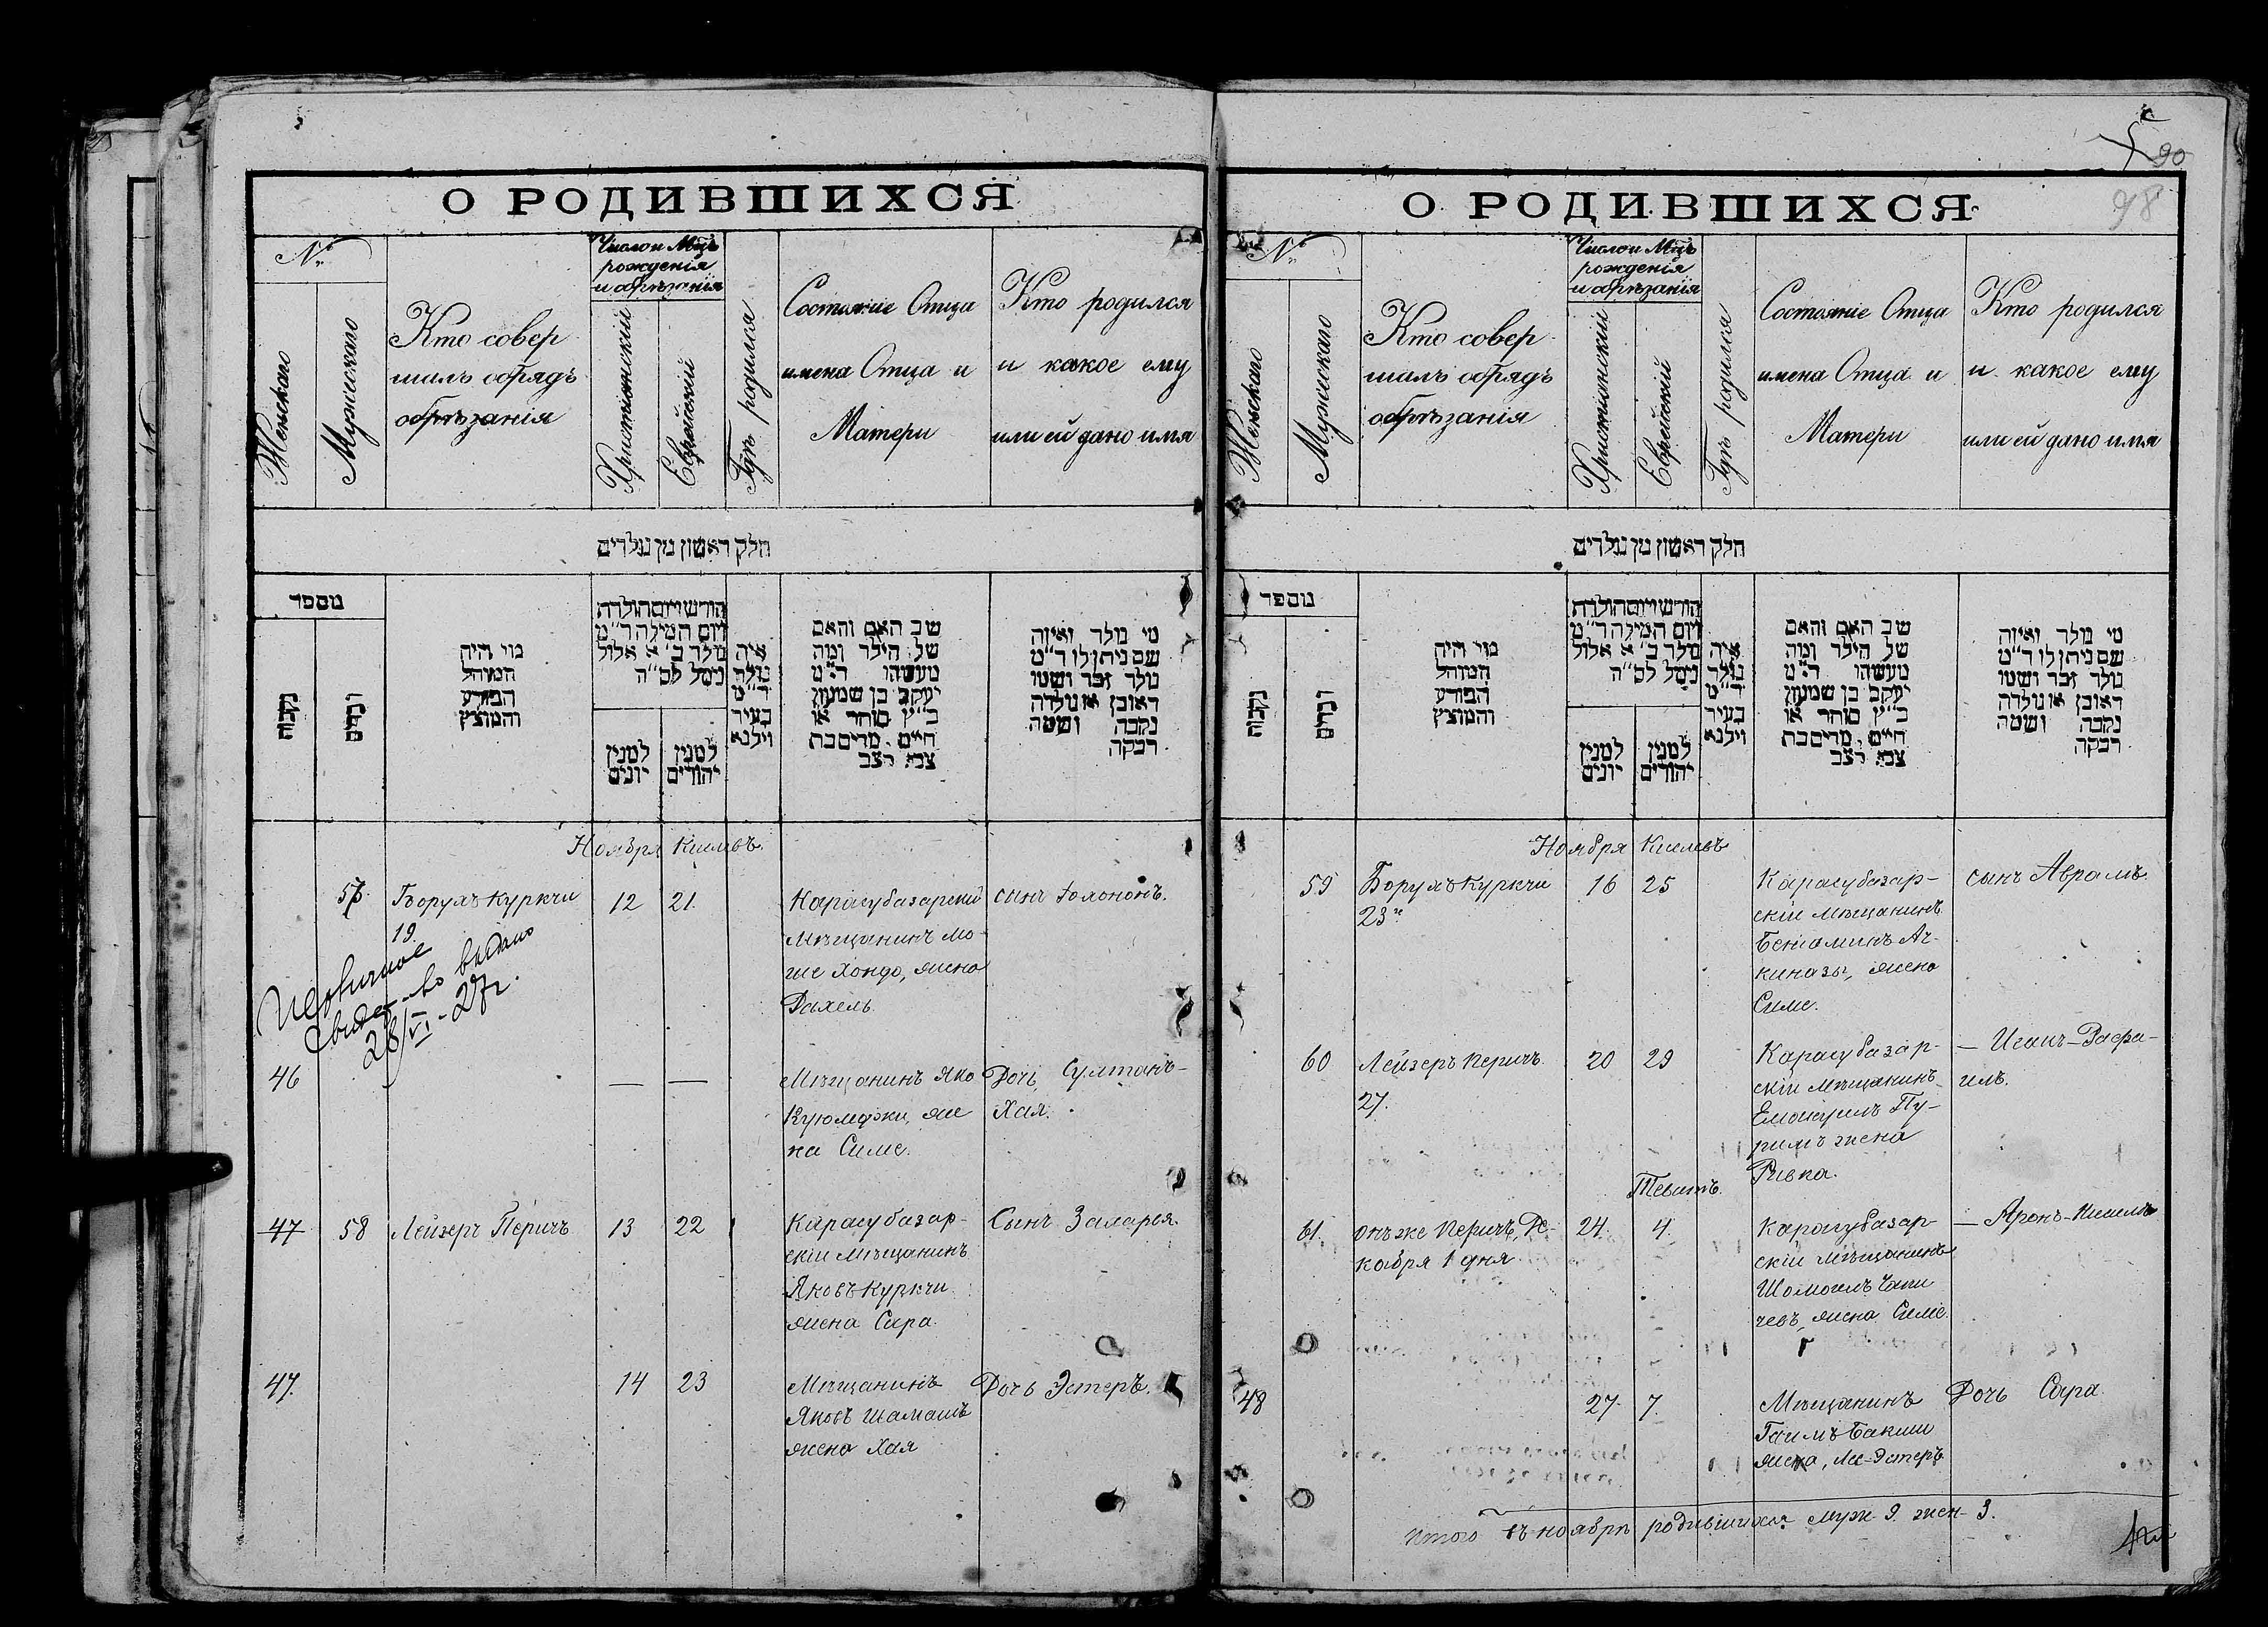 О РОДИВШИХСЯ
№
Женскаго
Мужискаго
Кто совер
шалъ обрядъ
обрѣзанія
Число и Мцъ
рожденія
и обрѣзанія
Христіянскій
Еврейскій
Гдѣ родился
Состояніе Отца
имена Отца и
Матери
Кто родился
и какое ему
или ей дано имя
חלק ראשון מן נולדים
מספר
נקבות
זכרים
מי היה
המוהל
הפורע
והמוצץ
חודש ויום הולדת
ויום המילה ד״מ
נולד ב׳ א אלול
נימל לס״ה
למנין
יונים
למנין
יהודים
איה
נולד
ד״מ
בעיר
וילנא
שב האם והאם
של הילד ומה
מעשהו ד״מ
יעקב בן שמעון
כ״ץ סוחר או
חיים מרים בת
צבא רצב
מי נולד ואיזה
שם ניתן לו ד״מ
נולד זכר ושמו
ראובן או נולדה
נקבה ושמה
רבקה
Ноября Кислевъ.
57 Борухъ Куркчи 12 21 Карасубазарский сынъ Соломонъ.
19.
Мѣщанинъ Мо-
ше Хондо, жена
Рахель
Метричное
Свидет-во выдано
28/VI-27г.
46 — — Мѣщанинъ Яко Дочь, Султанъ-
Куюмджи, же Хая.
на Симе.
47 58 Лейзеръ Перичъ 13 22 Карасубазар- Сынъ Захарья.
скій мѣщанинъ
Яковъ Куркчи
жена Сара
47. 14 23 Мѣщанинъ Дочь Эстеръ.
Яковъ Шамашъ
жена Хая
90
98
О РОДИВШИХСЯ
№
Женскаго
Мужискаго
Кто совер
шалъ обрядъ
обрѣзанія
Число и Мцъ
рожденія
и обрѣзанія
Христіянскій
Еврейскій
Гдѣ родился
Состояніе Отца
имена Отца и
Матери
Кто родился
и какое ему
или ей дано имя
חלק ראשון מן נולדים
מספר
נקבות
זכרים
מי היה
המוהל
הפורע
והמוצץ
חודש ויום הולדת
ויום המילה ד״מ
נולד ב׳ א אלול
נימל לס״ה
למנין
יונים
למנין
יהודים
איה
נולד
ד״מ
בעיר
וילנא
שב האם והאם
של הילד ומה
מעשהו ד״מ
יעקב בן שמעון
כ״ץ סוחר או
חיים מרים בת
צבא רצב
מי נולד ואיזה
שם ניתן לו ד״מ
נולד זכר ושמו
ראובן או נולדה
נקבה ושמה
רבקה
Ноября Кислевъ
59 Борухъ Куркчи 16 25 Карасубазар- сынъ Аврамъ.
23го
скіи мѣщанинъ
Бениоминъ Ач-
кинази, жена
Симе.
60 Лейзеръ Перичъ 20 29 Карасубазар- — Исакъ-Рафа-
27. скіи мѣщанинъ илъ.
Емануилъ Пу-
римъ жена
Ривка.
Теветъ.
61. онъже Перичъ, Де- 24. 4. Карасубазар- — Аронъ-
кабря 1 дня скіи мѣщанинъ
Шомоилъ Чапи
чевъ, жена Симе
48 27. 7. Мѣщанинъ Дочь Сара
Гаимъ Бакши
жена, Ле-Эстеръ
Итого въ ноябрѣ родившихся муж. 9. жен- 3.